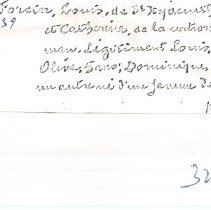 Forcin, Louis, de St Hyacinthe
39 et Catherine, de la nation
man. Légitiment Louis,
Olive, 5 ans; Dominique,
un autre né d'une femme de
32